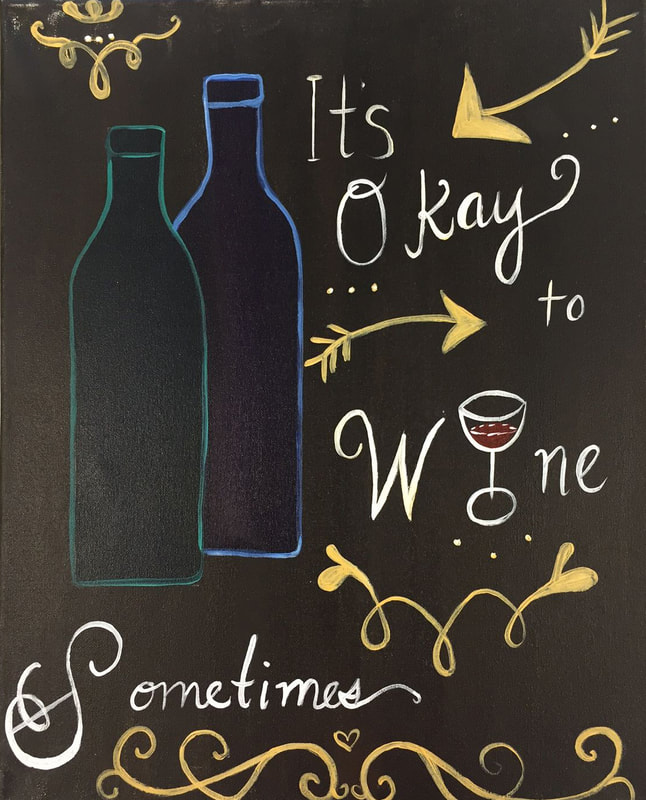 It's
Okay
to
Wine
Sometimes